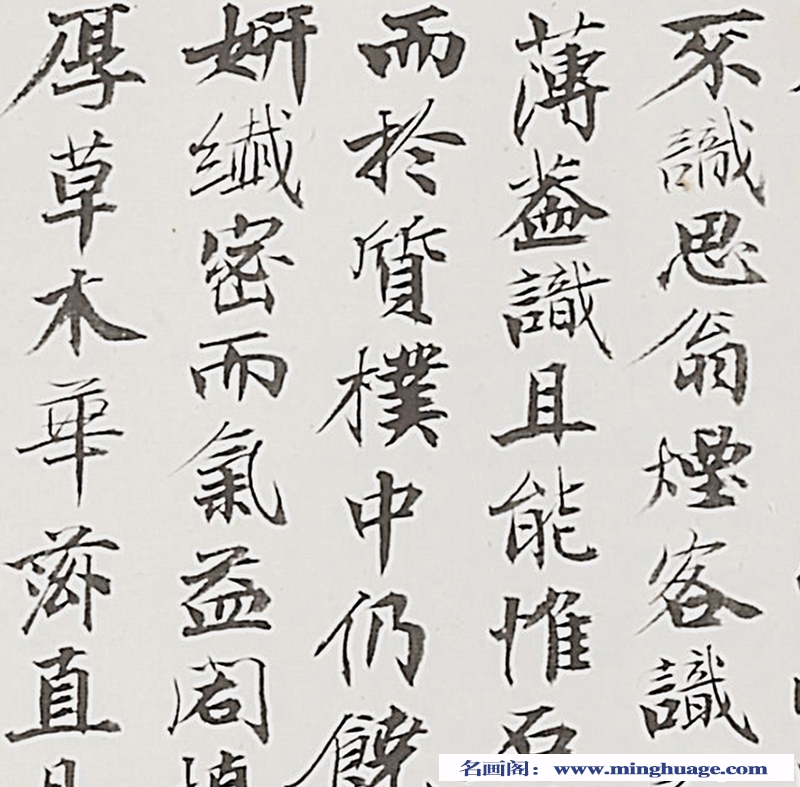 不識思翁煙客識
薄益識且能惟石
而於質樸中仍饒
妍纖密而氣益闳
厚草木華茲直
名画阁：www.minghuage.com